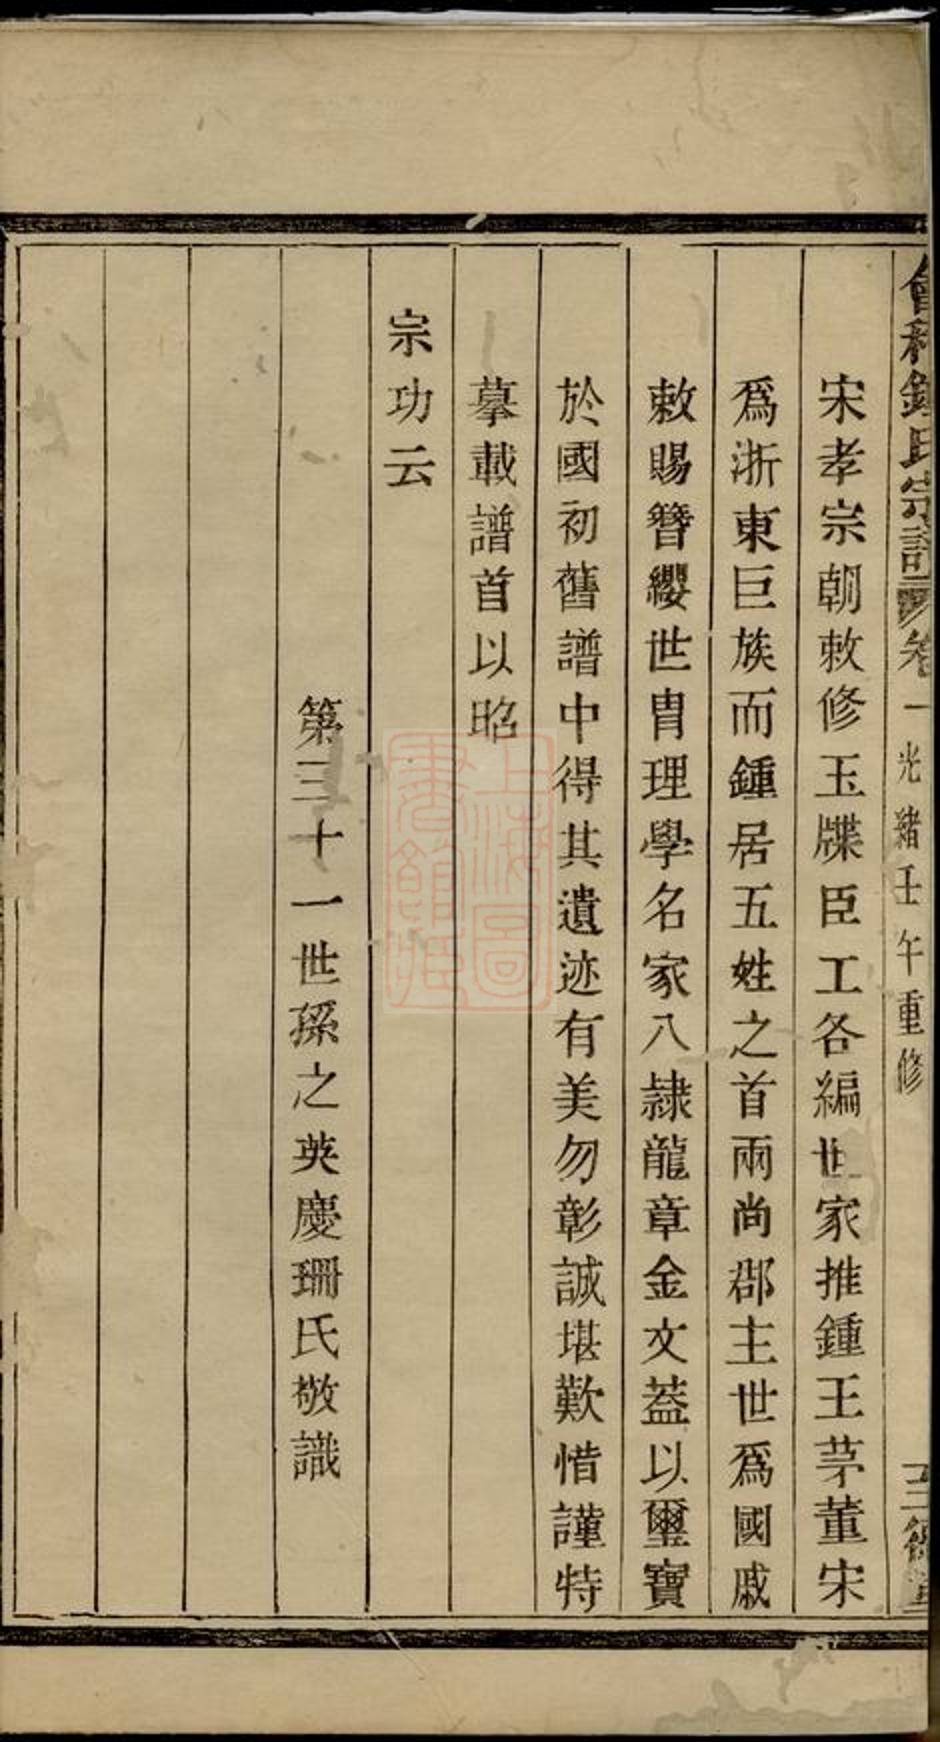 會稽鍾氏宗譜 卷一 光緒壬午重修
宋孝宗朝敕修玉牒臣工各編世家推鍾王茅董宋
爲浙東巨族而鍾居五姓之首兩尚郡主世爲國戚
敕賜簪纓世胄理學名家八隸龍章金文蓋以璽寶
於國初舊譜中得其遺迹有美勿彰誠堪歎惜謹特
摹載譜首以昭
宗功云
第三十一世孫之英慶珊氏敬識
上海圖
書館藏